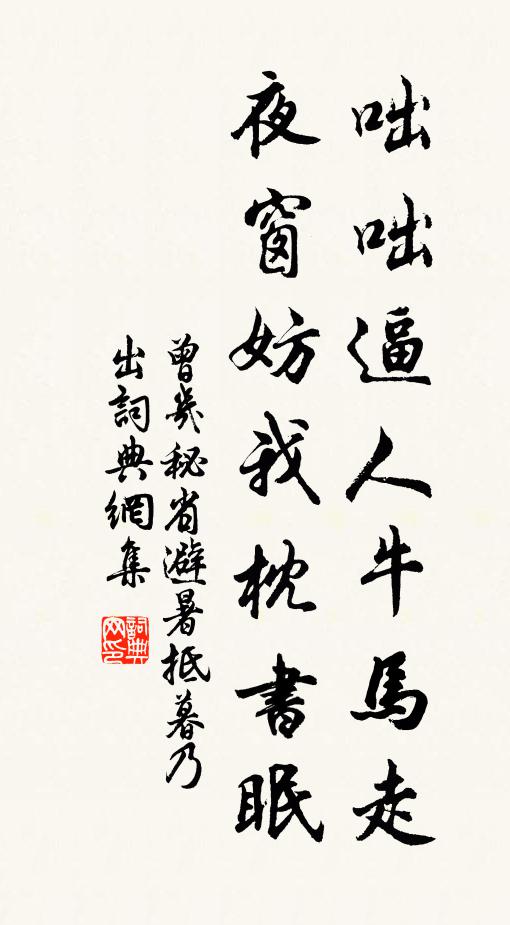 咄咄逼人牛馬走
夜窗妨我枕書眠
曾幾秘省避暑抵暮乃
出詞典網集
詞典网印